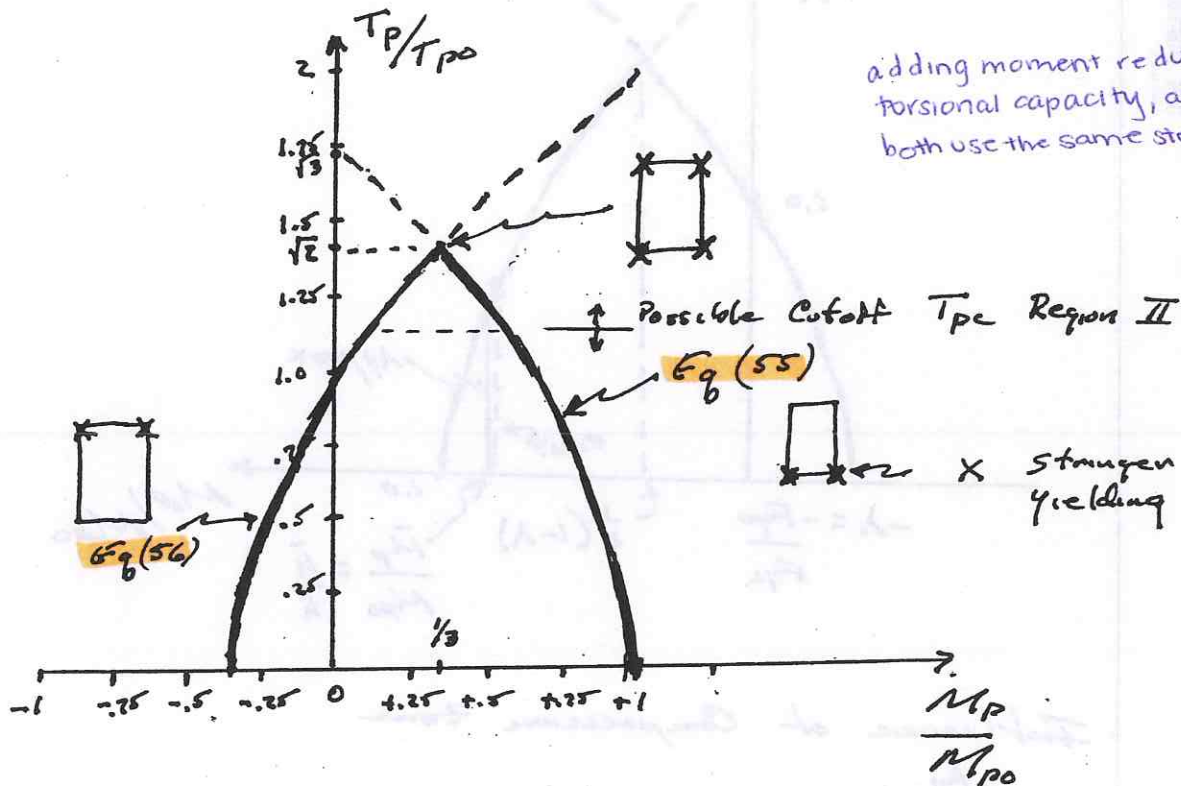 T_P/T_PO
adding moment redu
torsional capacity, a
both use the same st
2
1.75
√3
1.5
√2
1.25
Possible Cutoff T_Pc Region II
1.0
Eq (55)
.5
X Stringer
yielding
Eq (56)
.25
1/3
-1 -.75 -.5 -.25 0 +.25 +.5 +.25 +1
M_P
M_PO